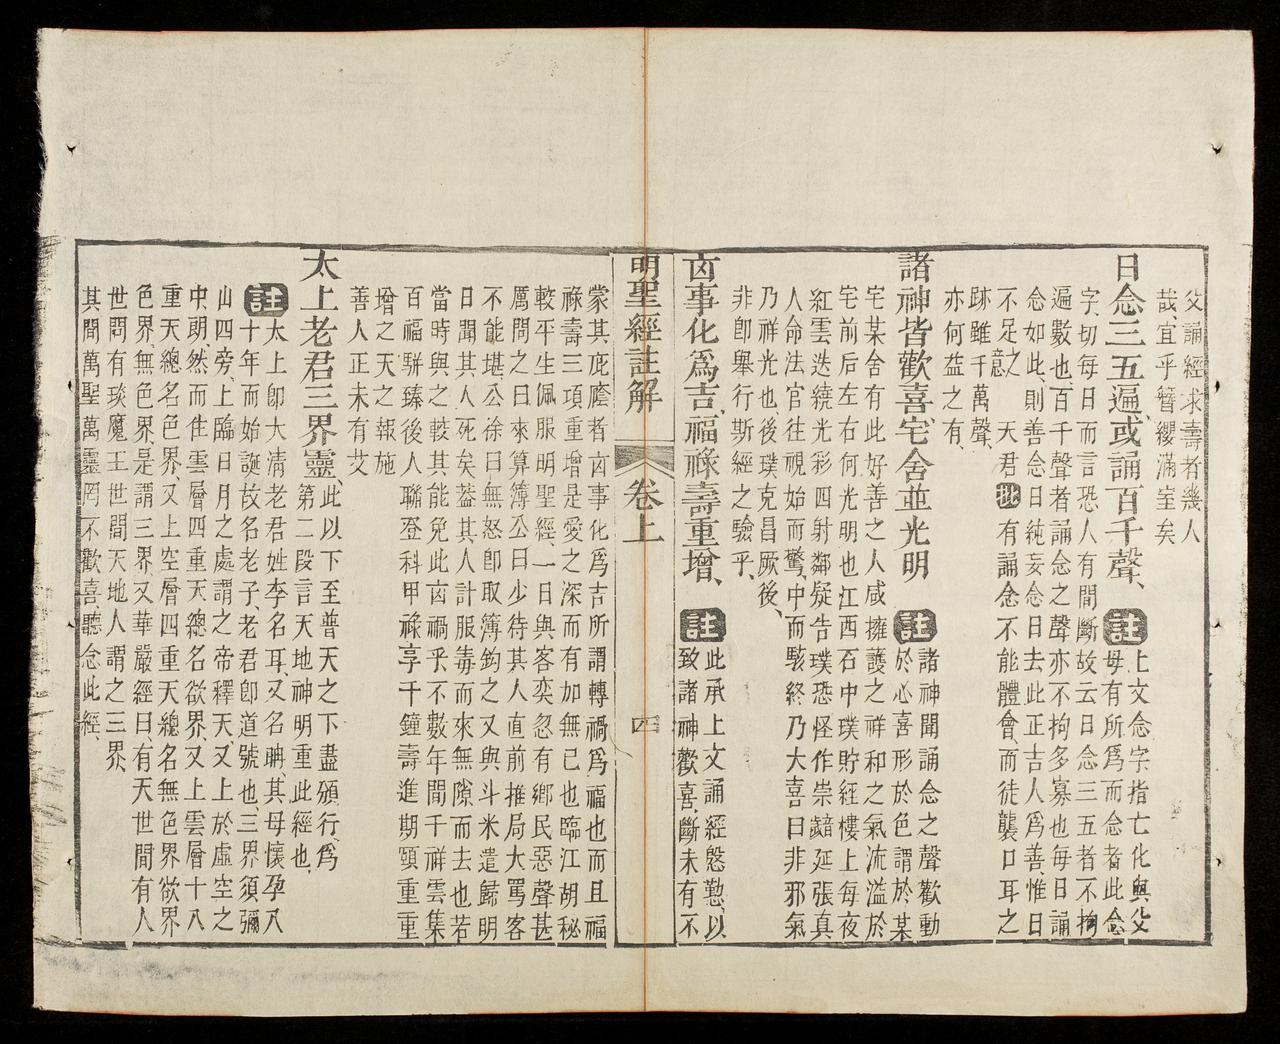 父誦經求壽者幾人
哉宜乎簪纓滿室矣
日念三五遍、或誦百千聲、註上文念字指亡化與父
母有所爲而念者此念
字切每日而言恐人有間斷故云日念三五者不拘
遍數也、百千聲者誦念之聲亦不拘多寡也每日誦
念如此、則善念日純妄念日去此正吉人爲善、惟日
不足之意、天君批有誦念不能體會、而徒襲口耳之
跡雖千萬聲、
亦何益之有、
諸神皆歡喜、宅舍並光明註諸神聞誦念之聲歡動
於心喜形於色謂於某
宅某舍有此好善之人咸擁護之祥和之氣流溢於
宅前后左右何光明也江西石中璞貯經樓上每夜
紅雲迭繞光彩四射鄰疑告璞恐怪作祟齰延張真
人命法官往視始而驚、中而駭終乃大喜曰非邪氣
乃祥光也、後璞克昌厥後、
非卽舉行斯經之驗乎、
凶事化爲吉、福祿壽重增、註此承上文誦經慇懃、以
致諸神歡喜、斷未有不
明聖經註解 卷上 四
蒙其庇廕者凶事化爲吉所謂轉禍爲福也而且福
祿壽三項重增是愛之深而有加無已也臨江胡秘
較平生佩服明聖經、一日與客奕忽有鄉民惡聲甚
厲問之曰來算簿公曰少待其人直前推局大罵客
不能堪公徐曰無怒卽取簿鈎之又與斗米遣歸明
日聞其人死矣葢其人計服毒而來無隙而去也若
當時與之較其能免此凶禍乎不數年間千祥雲集
百福駢臻後人聯登科甲祿享千鐘壽進期頤重重
增之天之報施
善人正未有艾
太上老君三界靈、此以下至普天之下盡頒行、爲
第二段言天地神明重此經也、
註太上卽大清老君姓李名耳、又名聃、其母懷孕八
十年而始誕故名老子、老君卽道號也、三界須彌
山四旁、上臨日月之處謂之帝釋天、又上於虛空之
中、朗、然而住雲層四重天總名欲界、又上雲層十八
重天總名色界、又上空層四重天總名無色界欲界
色界、無色界是謂三界又華嚴經曰、有天世間有人
世間有琰魔王世間天地人謂之三界、
其間萬聖萬靈罔不歡喜聽念此經、